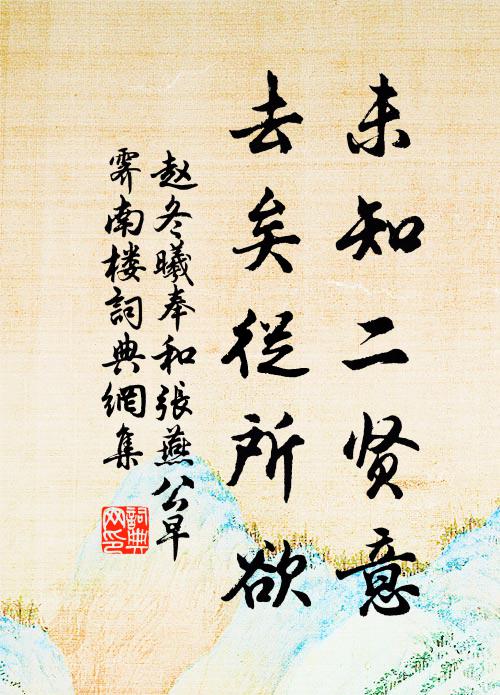 未知二贤意
去矣从所欲
赵冬曦奉和张燕公早
霁南楼詞典網集
詞典
网印